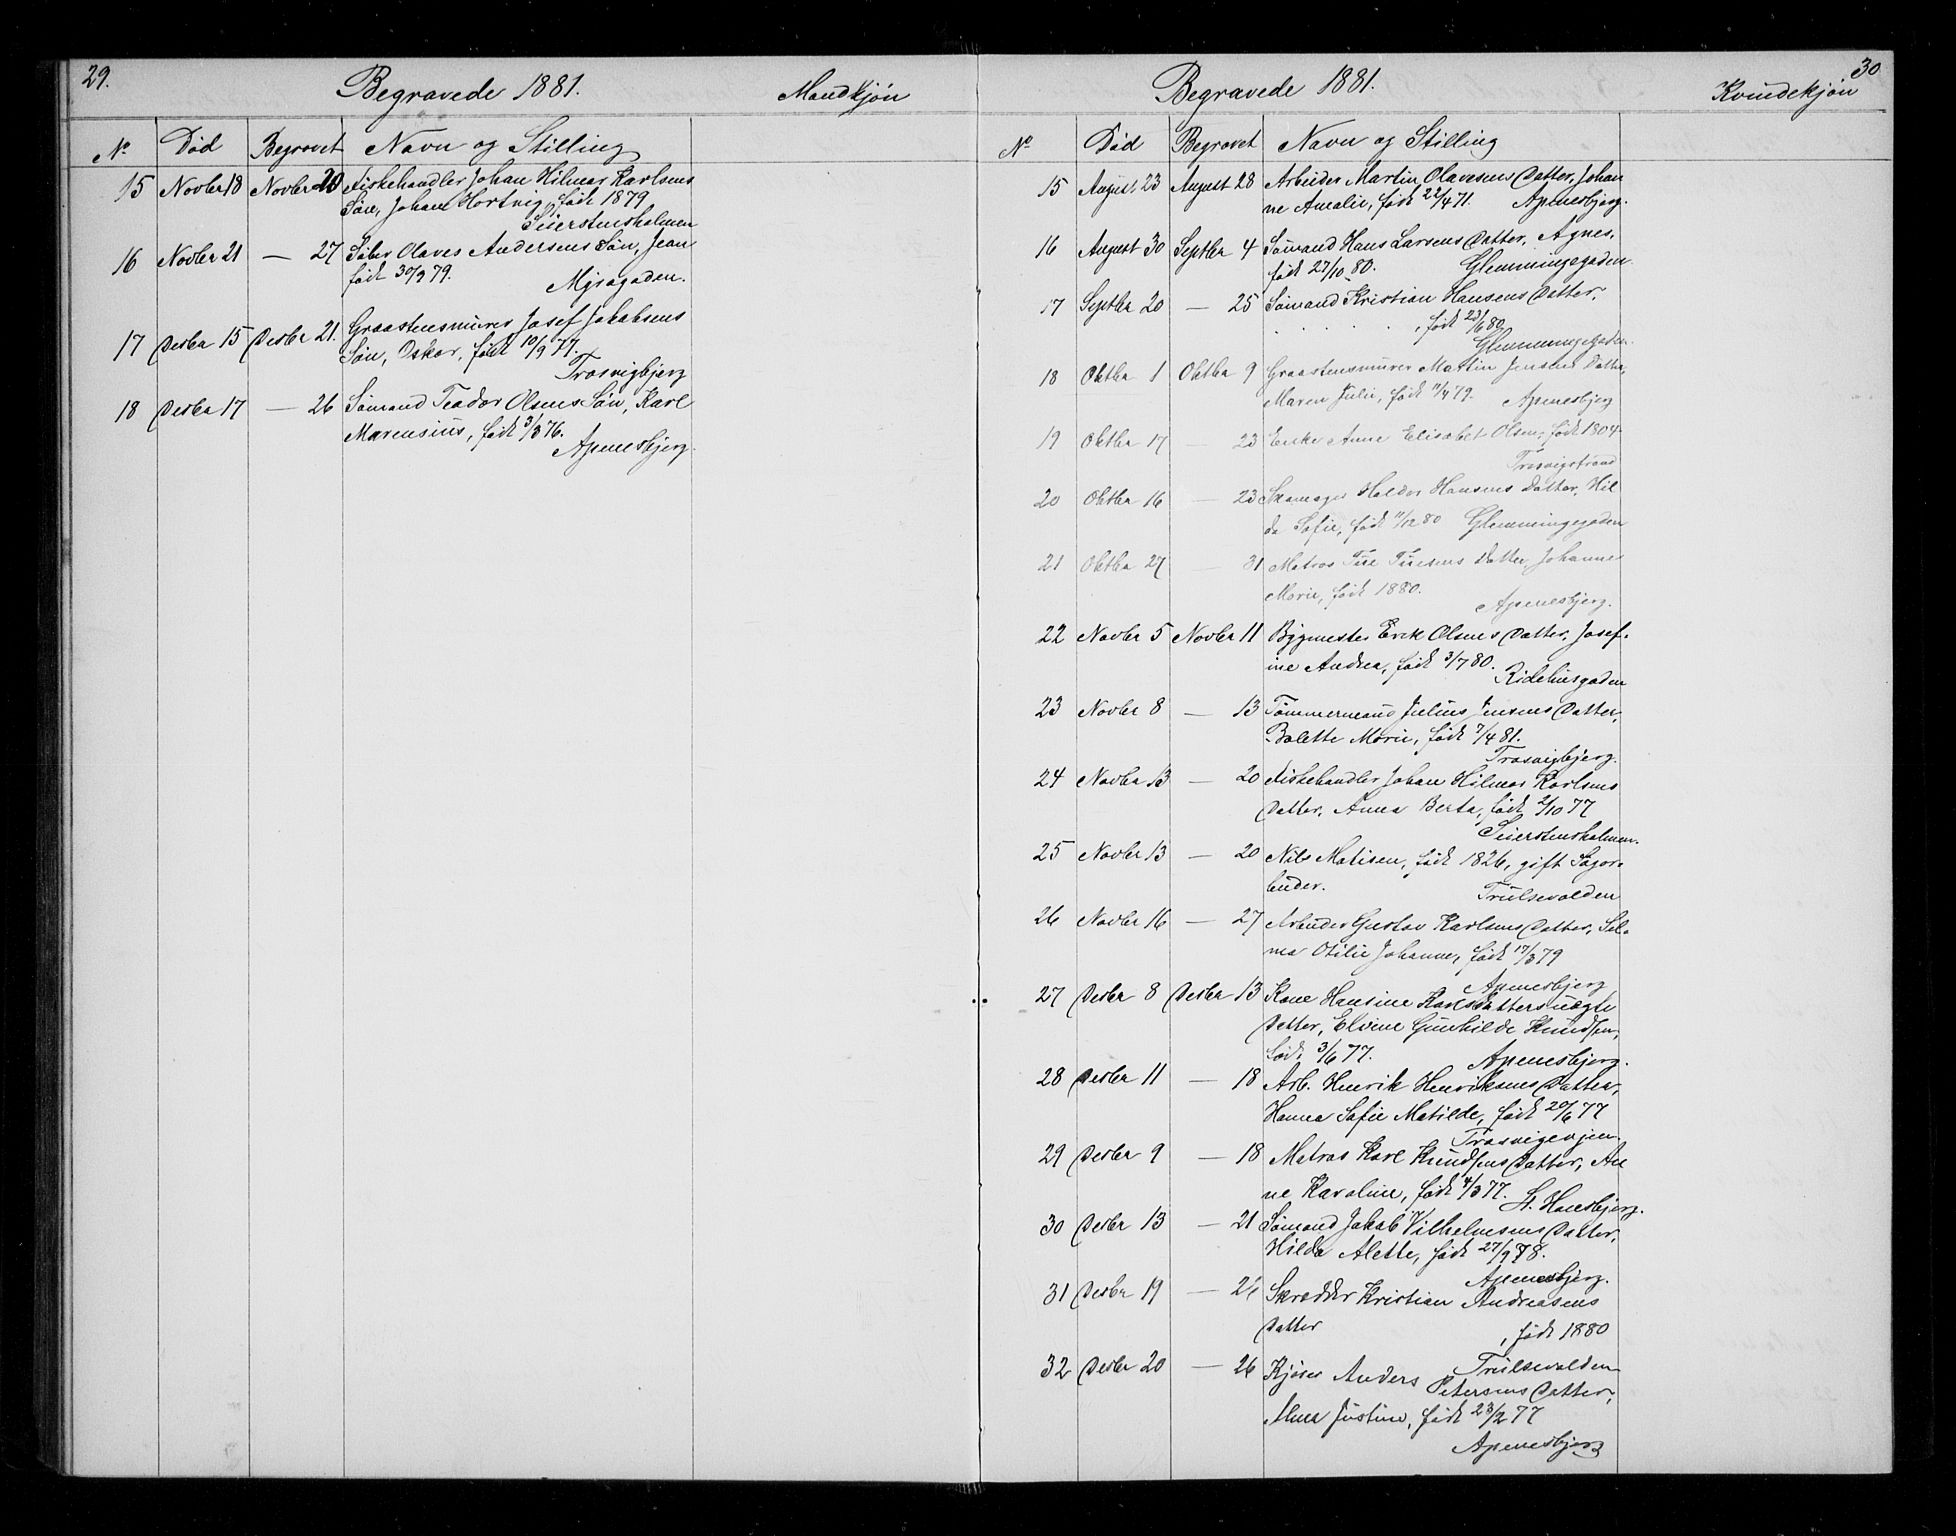 29.
Begravede 1881. Mandkjøn
No Død Begravet Navn og Stilling
15 Novbr 18 Novbr 20 Fiskehandler Johan Hilmar Karlsens
Søn, Johan Hartvig, født 1879
Seierstensholmen
16 Novbr 21 — 27 Olaves Andersens Søn, Jean
født 30/9 79. Myragaden.
17 Desbr 15 Desbr 21. Graastensmurer Josef Jakobsens
Søn, Oskar, født 10/9 77.
Trosvigbjerg
18 Desbr 17 — 26 Sømand Teodor Olsens Søn, Karl
Marensius, født 3/3 76.
Apenesbjerg.
30
Begravede 1881. Kvindekjøn
No Død Begravet Navn og Stilling
15 August 23 August 28 Arbeider Martin Olavesens Datter, Johan
ne Amalie, født 22/4 71. Apenesbjerg.
16 August 30 Septbr 4 Sømand Hans Larsens Datter, Agnes,
født 27/10 80. Glemmingegaden.
17 Septbr 20 — 25 Sømand Kristian Hansens Datter,
. . . . . , født 23/6 80,
Glemmingegaden.
18 Oktbr 1 Oktbr 9 Graastensmurer Martin Jensens Datter,
Maren Julie, født 11/4 79. Apenesbjerg
19 Oktbr 17 — 23 Enke Anne Elisabet Olsen, født 1804
Trosvigstrand
20 Oktbr 16 — 23 Skomager Haldor Hansens Datter, Hil
da Sofie, født 11/12 80 Glemmingegaden
21 Oktbr 27 — 31 Matros Ture Turesens Datter, Johanne
Marie, født 1880.
Apenesbjerg.
22 Novbr 5 Novbr 11 Bygmester Erik Olsens Datter, Josef-
ine Andrea, født 3/7 80.
Ridehusgaden
23 Novbr 8 — 13 Tømmermand Julius Jensens Datter,
Bolette Marie, født 7/4 81.
Trosvigbjerg.
24 Novbr 13 — 20 Fiskehandler Johan Hilmar Karlsens
Datter, Anna Berta, født 2/10 77
Seierstensholmen.
25 Novbr 13 — 20 Nils Matisen, født 1826, gift Sagar-
beider. Trulsevolden
26 Novbr 16 — 27 Arbeider Gustav Karlsens Datter, Sel-
ma Otilie Johanne, født 17/3 79
Apenesbjerg
27 Desbr 8 Desbr 13 Kone Hansine Karlsdatters uægte
Datter, Elvine Gunhilde Knudsen,
født 3/6 77. Apenesbjerg.
28 Desbr 11 — 18 Arb. Henrik Henriksens Datter,
Hanna Sofie Matilde, født 20/6 77
29 Desbr 9 — 18 Matros Karl Knudsens Datter, An
ne Karoline, født 4/3 77. St. Hansbjerg.
30 Desbr 13 — 21 Sømand Jakob Vilhelmsens Datter,
Hilda Alette, født 27/9 78.
Apenesbjerg.
31 Desbr 19 — 26 Skrædder Kristian Andreasens
Datter , født 1880
Trulsevolden
32 Desbr 20 — 26 Kjører Anders Petersens Datter,
Alma Justine, født 23/2 77
Apenesbjerg